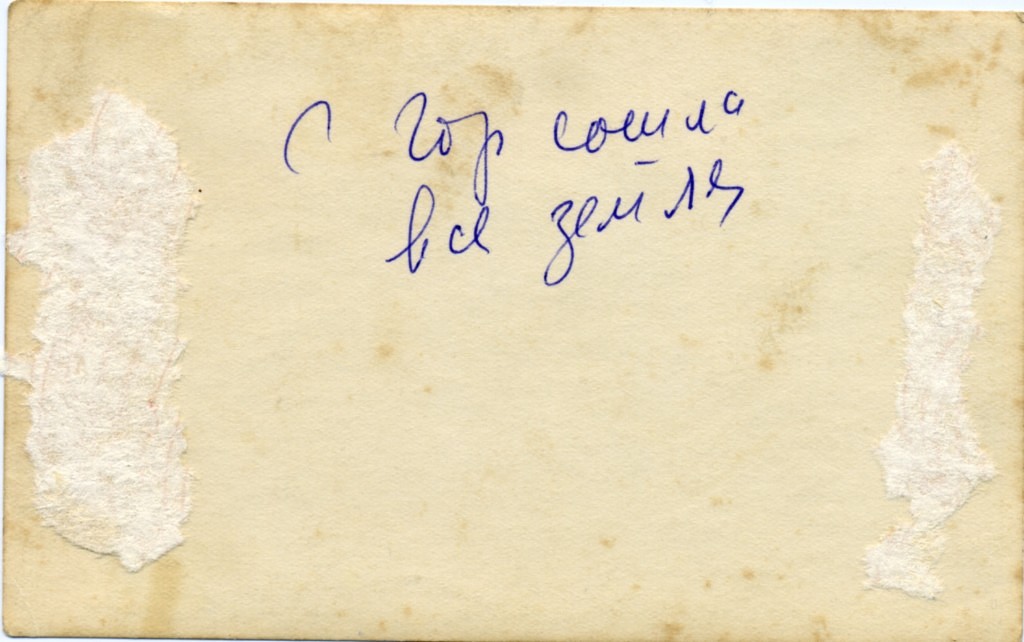 С гор сошла
вся земля